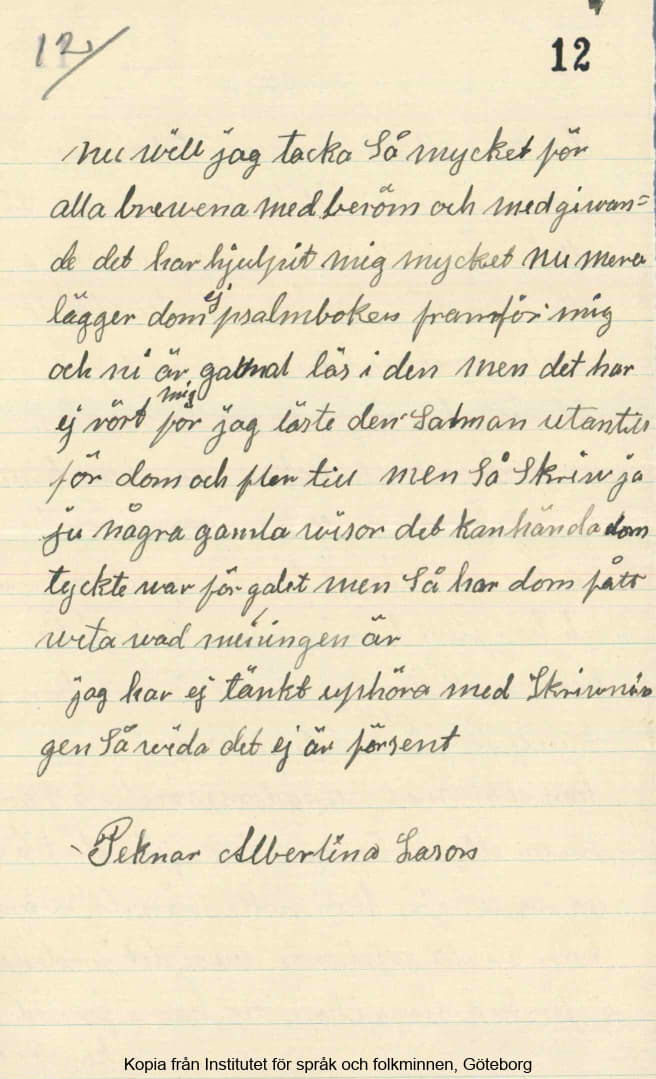 12
12
nu will jag tacka Så mycket för
alla brewena med beröm och medgiwan=
de det har hjulpit mig mycket nu mera
lägger dom ej psalmboken framför mig
och ni är galnal läs i den men det har
ej rört mig för jag läste den Salman utantill
för dom och fler till men Så Skriw ja
ju några gamla wisor det kan hända dom
tyckte war för galet men Så har dom fått
weta wad meningen är
jag har ej tänkt uphöra med Skriwnin
gen Så wida det ej är försent
Teknar Albertina Larson
Kopia från Institutet för språk och folkminnen, Göteborg